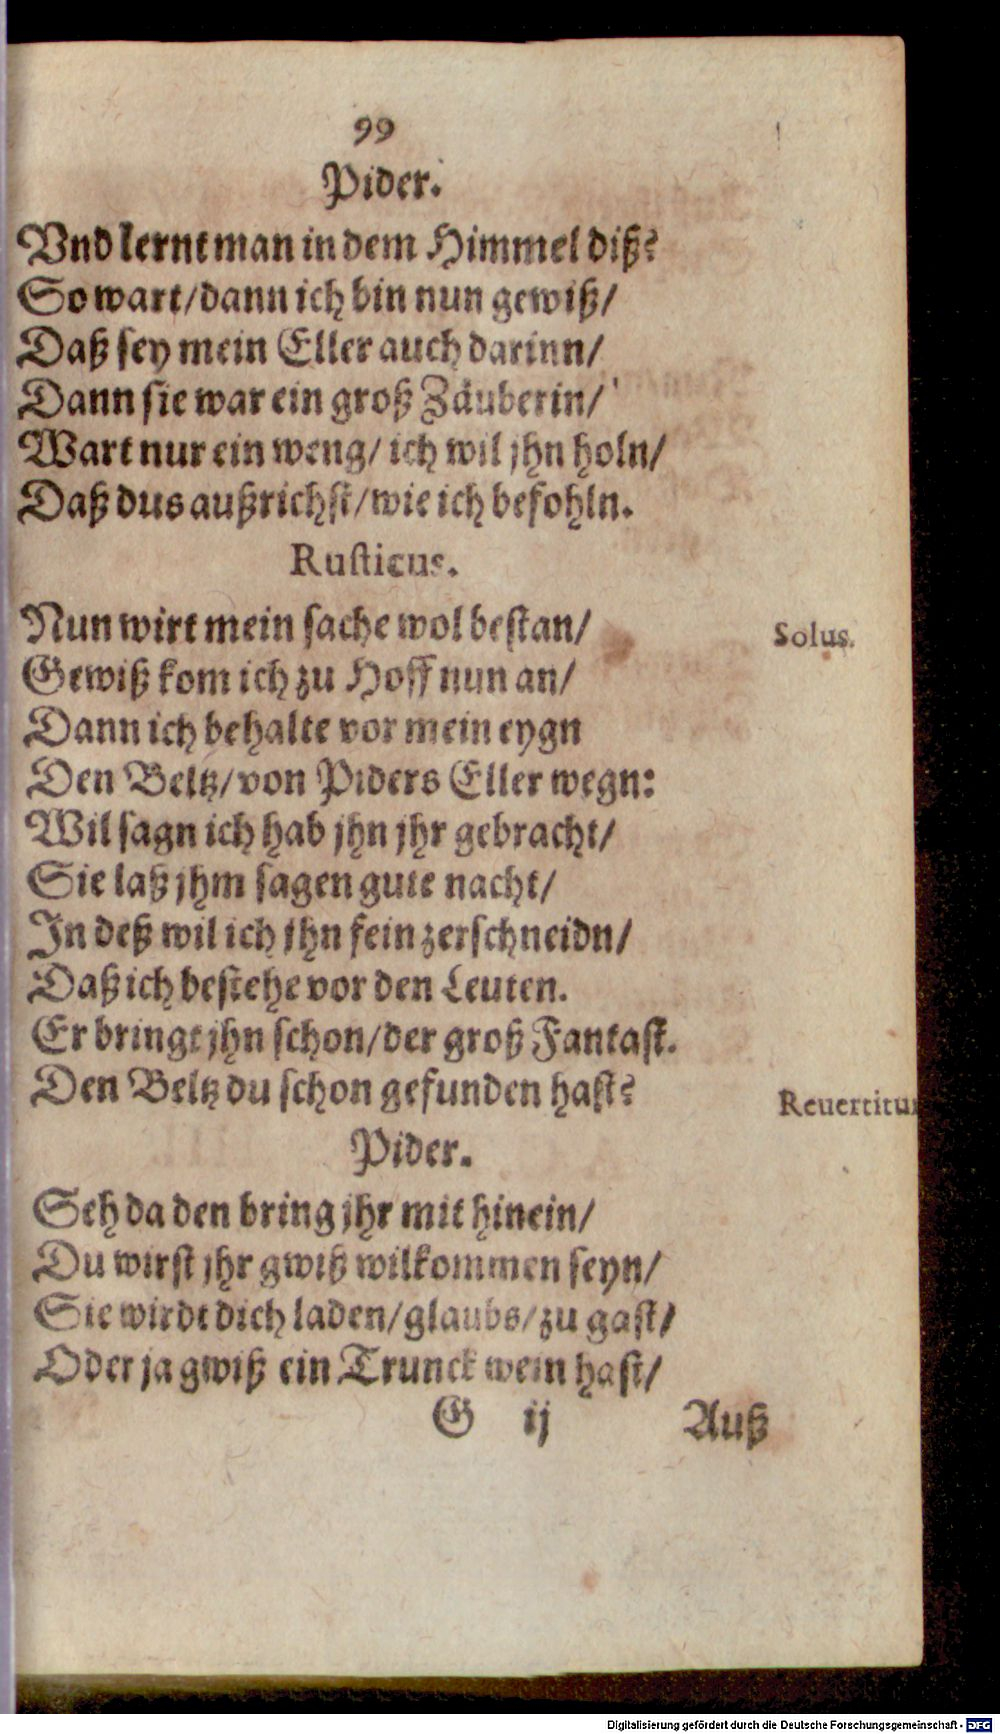 99
Pider.
Vnd lernt man in dem Himmel diß?
So wart/ dann ich bin nun gewiß/
Daß sey mein Eller auch darinn/
Dann sie war ein groß Zäuberin/
Wart nur ein weng/ ich wil jhn holn/
Daß dus außrichst/ wie ich befohln.
Rusticus.
Nun wirt mein sache wol bestan/ Solus.
Gewiß kom ich zu Hoff nun an/
Dann ich behalte vor mein eygn
Den Beltz/ von Piders Eller wegn:
Wil sagn ich hab jhn jhr gebracht/
Sie laß jhm sagen gute nacht/
In deß wil ich jhn fein zerschneidn/
Daß ich bestehe vor den Leuten.
Er bringt jhn schon/ der groß Fantast.
Den Beltz du schon gefunden hast? Reuertitur
Pider.
Seh da den bring jhr mit hinein/
Du wirst jhr gwiß wilkommen seyn/
Sie wirdt dich laden/ glaubs/ zu gast/
Oder ja gwiß ein Trunck wein hast/
G ij Auß
Digitalisierung gefördert durch die Deutsche Forschungsgemeinschaft - DFG